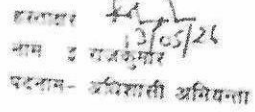 हस्ताक्षर
13/05/26
नाम : राजकुमार
पदनाम- अधिशासी अभियन्ता